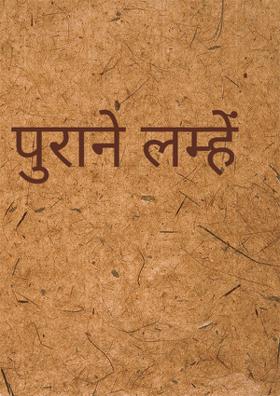 पुराने लम्हें